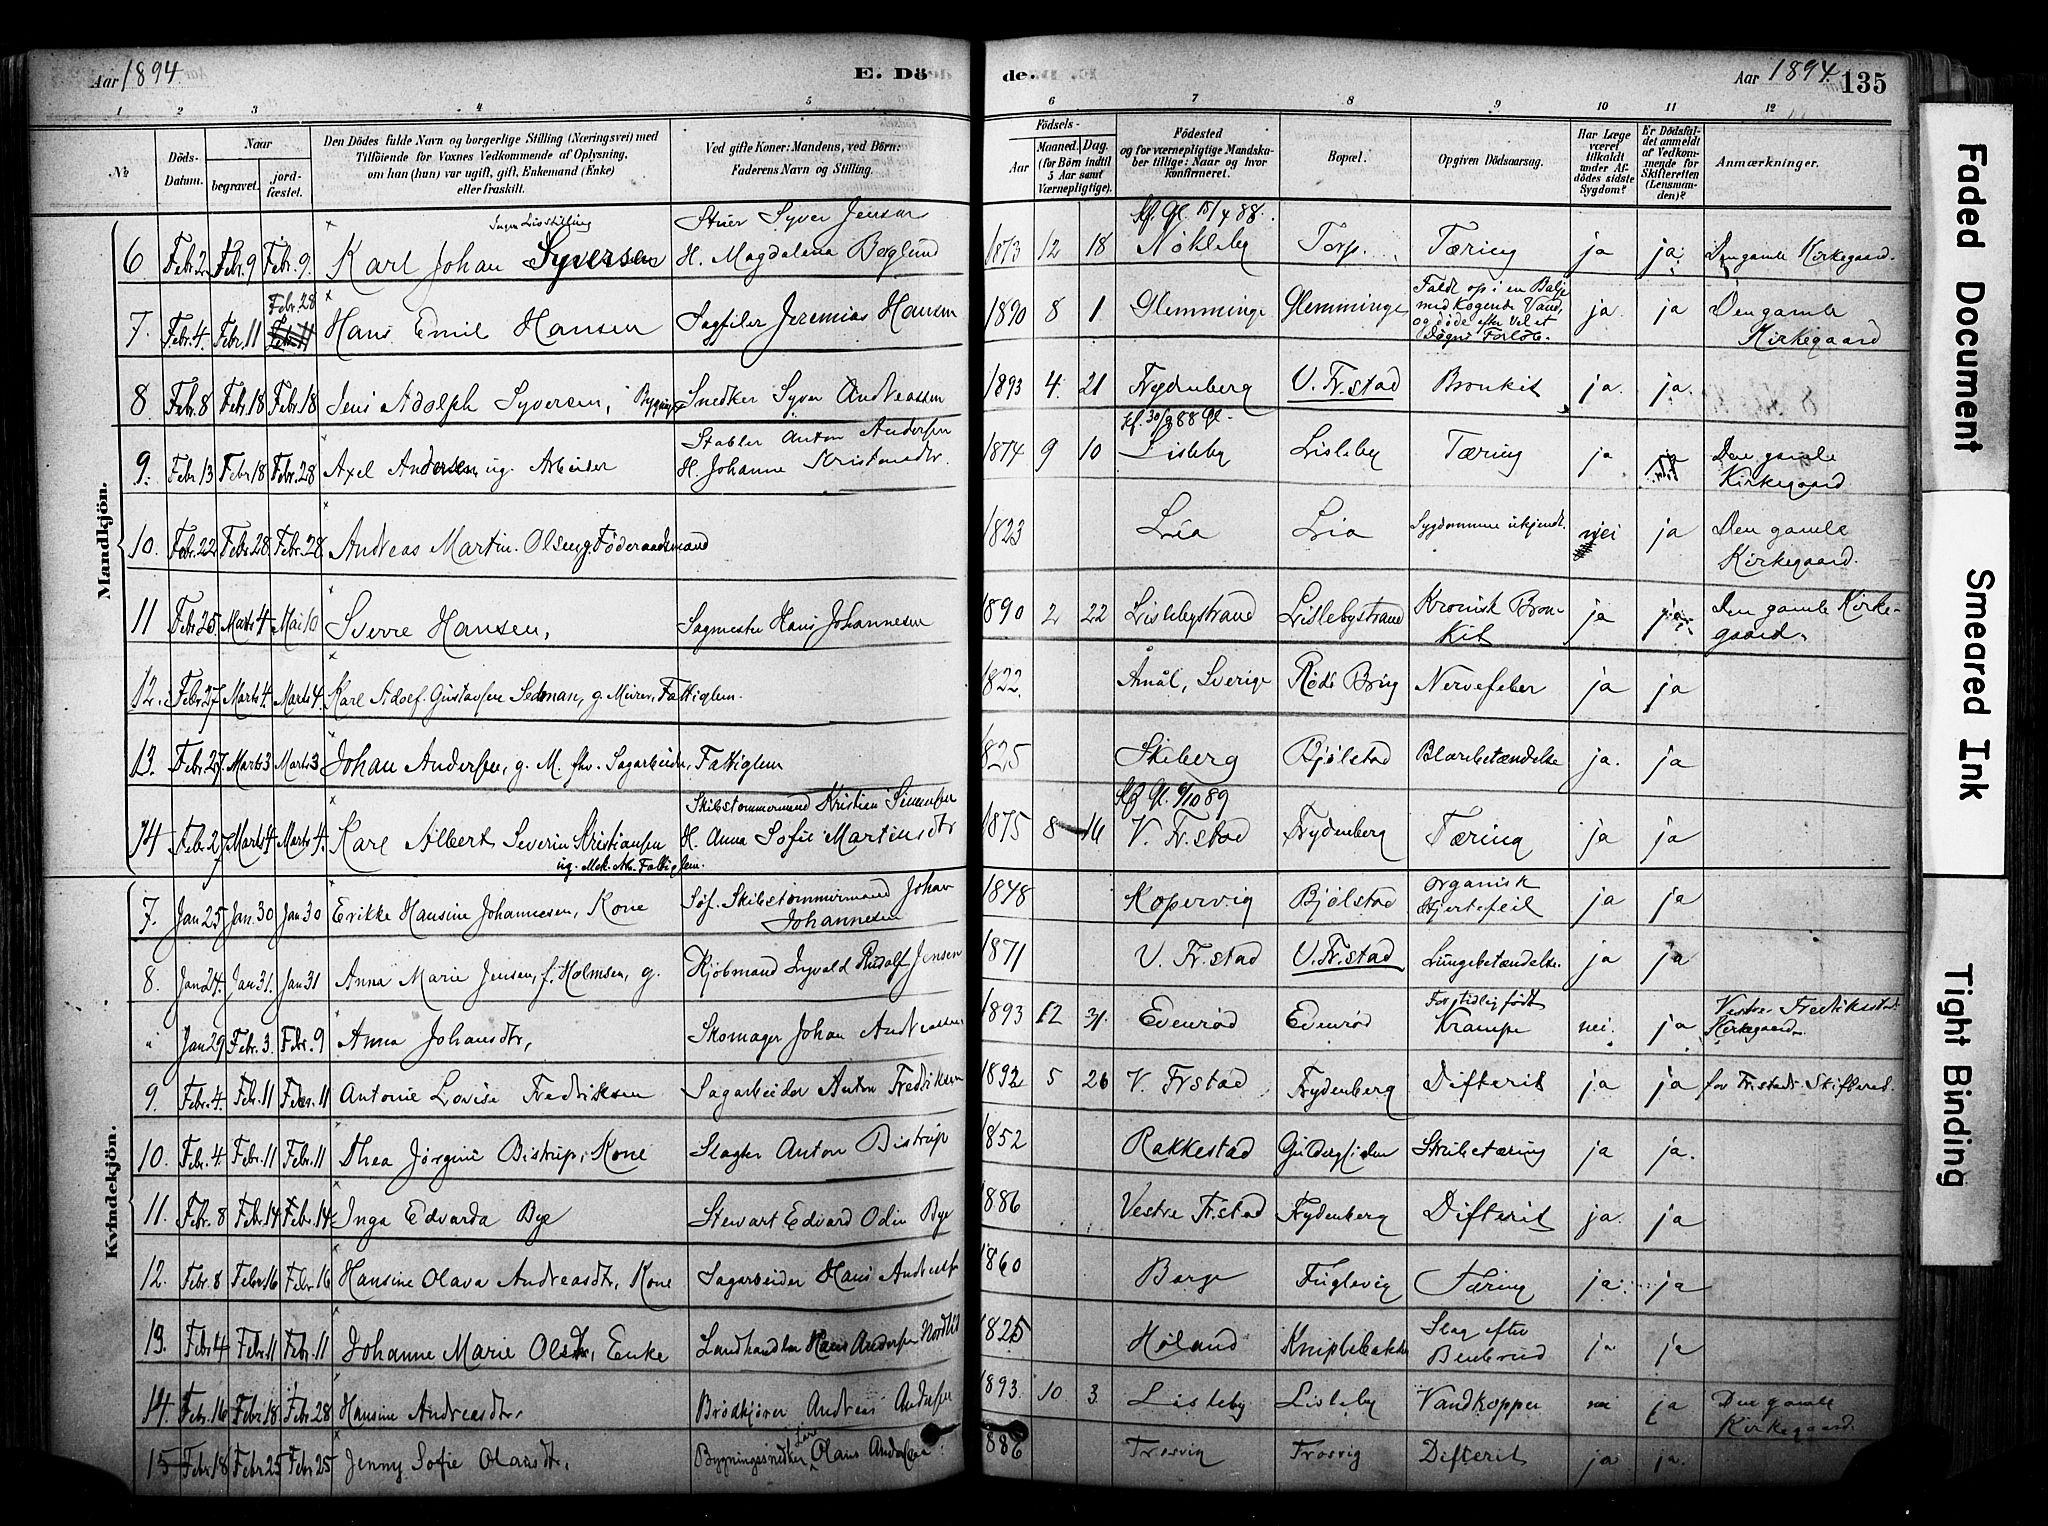 Aar 1894. E. Döde. Aar 1894. 135
1 2 3 4 5 6 7 8 9 10 11 12
№ Döds-Datum. Naar begravet. jordfæstet. Den Dödes fulde Navn og borgerlige Stilling (Næringsvei) med Tilföiende for Voxnes Vedkommende af Oplysning, om han (hun) var ugift, gift, Enkemand (Enke) eller fraskilt. Ved gifte Koner: Mandens, ved Börn: Faderens Navn og Stilling. Födsels- Aar Maaned. Dag. (for Börn indtil 5 Aar samt Værnepligtige). Födested og for værnepligtige Mandskaber tillige: Naar og hvor Konfirmeret. Bopæl. Opgiven Dödsaarsag. Har Læge været tilkaldt under Afdödes sidste Sygdom? Er Dödsfaldet anmeldt af Vedkommende for Skifteretten (Lensmanden)? Anmærkninger.
Mandkjön.
6 Febr. 2 Febr. 9 Febr. 9. Karl Johan Syversen Ingen Livsstilling Stuer Syver Jensen H. Magdalena Berglund 1873 12 18 Kf. Gl. 15/4 88. Nøkleby Torp. Tæring ja ja. Den gamle Kirkegaard.
7. Febr. 4. Febr. 11 Febr. 28 Hans Emil Hansen Sagfiler Jeremias Hansen 1890 8 1 Glemminge Glemminge Faldt op i en Balje med kogende Vand, og døde efter vel et Døgns Forløb. ja ja Den gamle Kirkegaard
8. Febr. 8 Febr. 18 Febr. 18 Jens Adolph Syversen, Bygnings Snedker Syver Andreassen 1893 4. 21 Frydenberg V. Fr.stad Bronkit ja ja.
9. Febr. 13 Febr. 18 Febr. 28 Axel Andersen, ug. Arbeider Stabler Anton Andersen H. Johanne Kristensdtr. 1874 9 10 Kf. 30/9 88 Gl. Lisleby Lisleby Tæring ja Den gamle Kirkegaard
10. Febr. 22 Febr. 28 Febr. 28 Andreas Martin Olsen, g. Føderaadsmand 1823 Lia Lia Sygdommen ukjendt. nei ja Den gamle Kirkegaard.
11 Febr. 25 Marts 4 Mai 10 Sverre Hansen, Sagmester Hans Johannesen 1890 2 22 Lislebystrand Lislebystrand Kronisk Bronkit ja ja Den gamle Kirkegaard.
12. Febr. 27 Marts 4. Marts 4. Karl Adolf Gustafsen Sedman, g. Murer, Fattiglem. 1822. Åmål, Sverige Røds Brug Nervefeber ja ja
13. Febr. 27 Marts 3 Marts 3 Johan Andersen, g. M. fhv. Sagarbeider, Fattiglem 1825 Skeberg Bjølstad Blærebetændelse ja. ja
14 Febr. 27 Marts 4 Marts 4. Karl Albert Severin Kristiansen ug. Mek. Arb. Fattiglem. Skibstømmermand Kristian Simensen H. Anna Sofie Martinsdtr 1875 8 16 Kf. Gl. 6/10 89 V. Fr.stad Frydenberg Tæring ja ja
Kvindekjön.
7. Jan 25 Jan. 30 Jan 30 Erikke Hansine Johannesen, Kone Søf. Skibstømmermand Johan Johannesen 1848 Kopervig Bjølstad organisk Hjertefeil ja ja
8. Jan 24. Jan 31. Jan 31 Anna Marie Jensen, f. Holmsen, g. Kjøbmand Ingvald Rudolf Jensen 1871 V. Fr.stad V. Fr.stad Lungebetændelse. ja ja
" Jan 29 Febr. 3. Febr. 9 Anna Johansdtr, Skomager Johan Andreassen 1893 12 31. Evenrød Evenrød For tidlig født Krampe nei. ja Vestre Fredriksstads Kirkegaard
9. Febr. 4. Febr. 11 Febr. 11 Antonie Lovise Fredriksen Sagarbeider Anton Fredriksen 1892 5 26 V. Frstad Frydenberg Difterit ja ja for Fr.stads Skifteret.
10. Febr. 4. Febr. 11 Febr. 11 Thea Jørgine Bistrup, Kone Slagter Anton Bistrup 1852 Rakkestad Guldbergsiden Strubetæring ja ja.
11. Febr. 8 Febr. 14 Febr. 14 Inga Edvarda Bye Stewart Edvard Odin Bye 1886 Vestre Fr.stad Frydenberg Difterit ja. ja
12. Febr. 8 Febr. 16 Febr. 16 Hansine Olava Andreasdtr, Kone Sagarbeider Hans Andersen 1860 Borge Fuglevig Tæring ja. ja
13. Febr. 4 Febr. 11 Febr. 11 Johanne Marie Olsdtr, Enke Landhandler Hans Andersen Nordlid 1825 Høland Kniplebakken Slag efter Benbrud ja ja
14. Febr. 16 Febr. 18 Febr. 28 Hansine Andreasdtr. Brødkjører Andreas Andersen 1893. 10 3 Lisleby Lisleby Vandkopper nei ja Den gamle Kirkegaard.
15 Febr. 18 Febr. 25 Febr. 25 Jenny Sofie Olausdtr, Bygningssnedker Lars Olaus Andersen 1886 Trosvig Trosvig Difterit ja ja.
Faded Document
Smeared Ink
Tight Binding